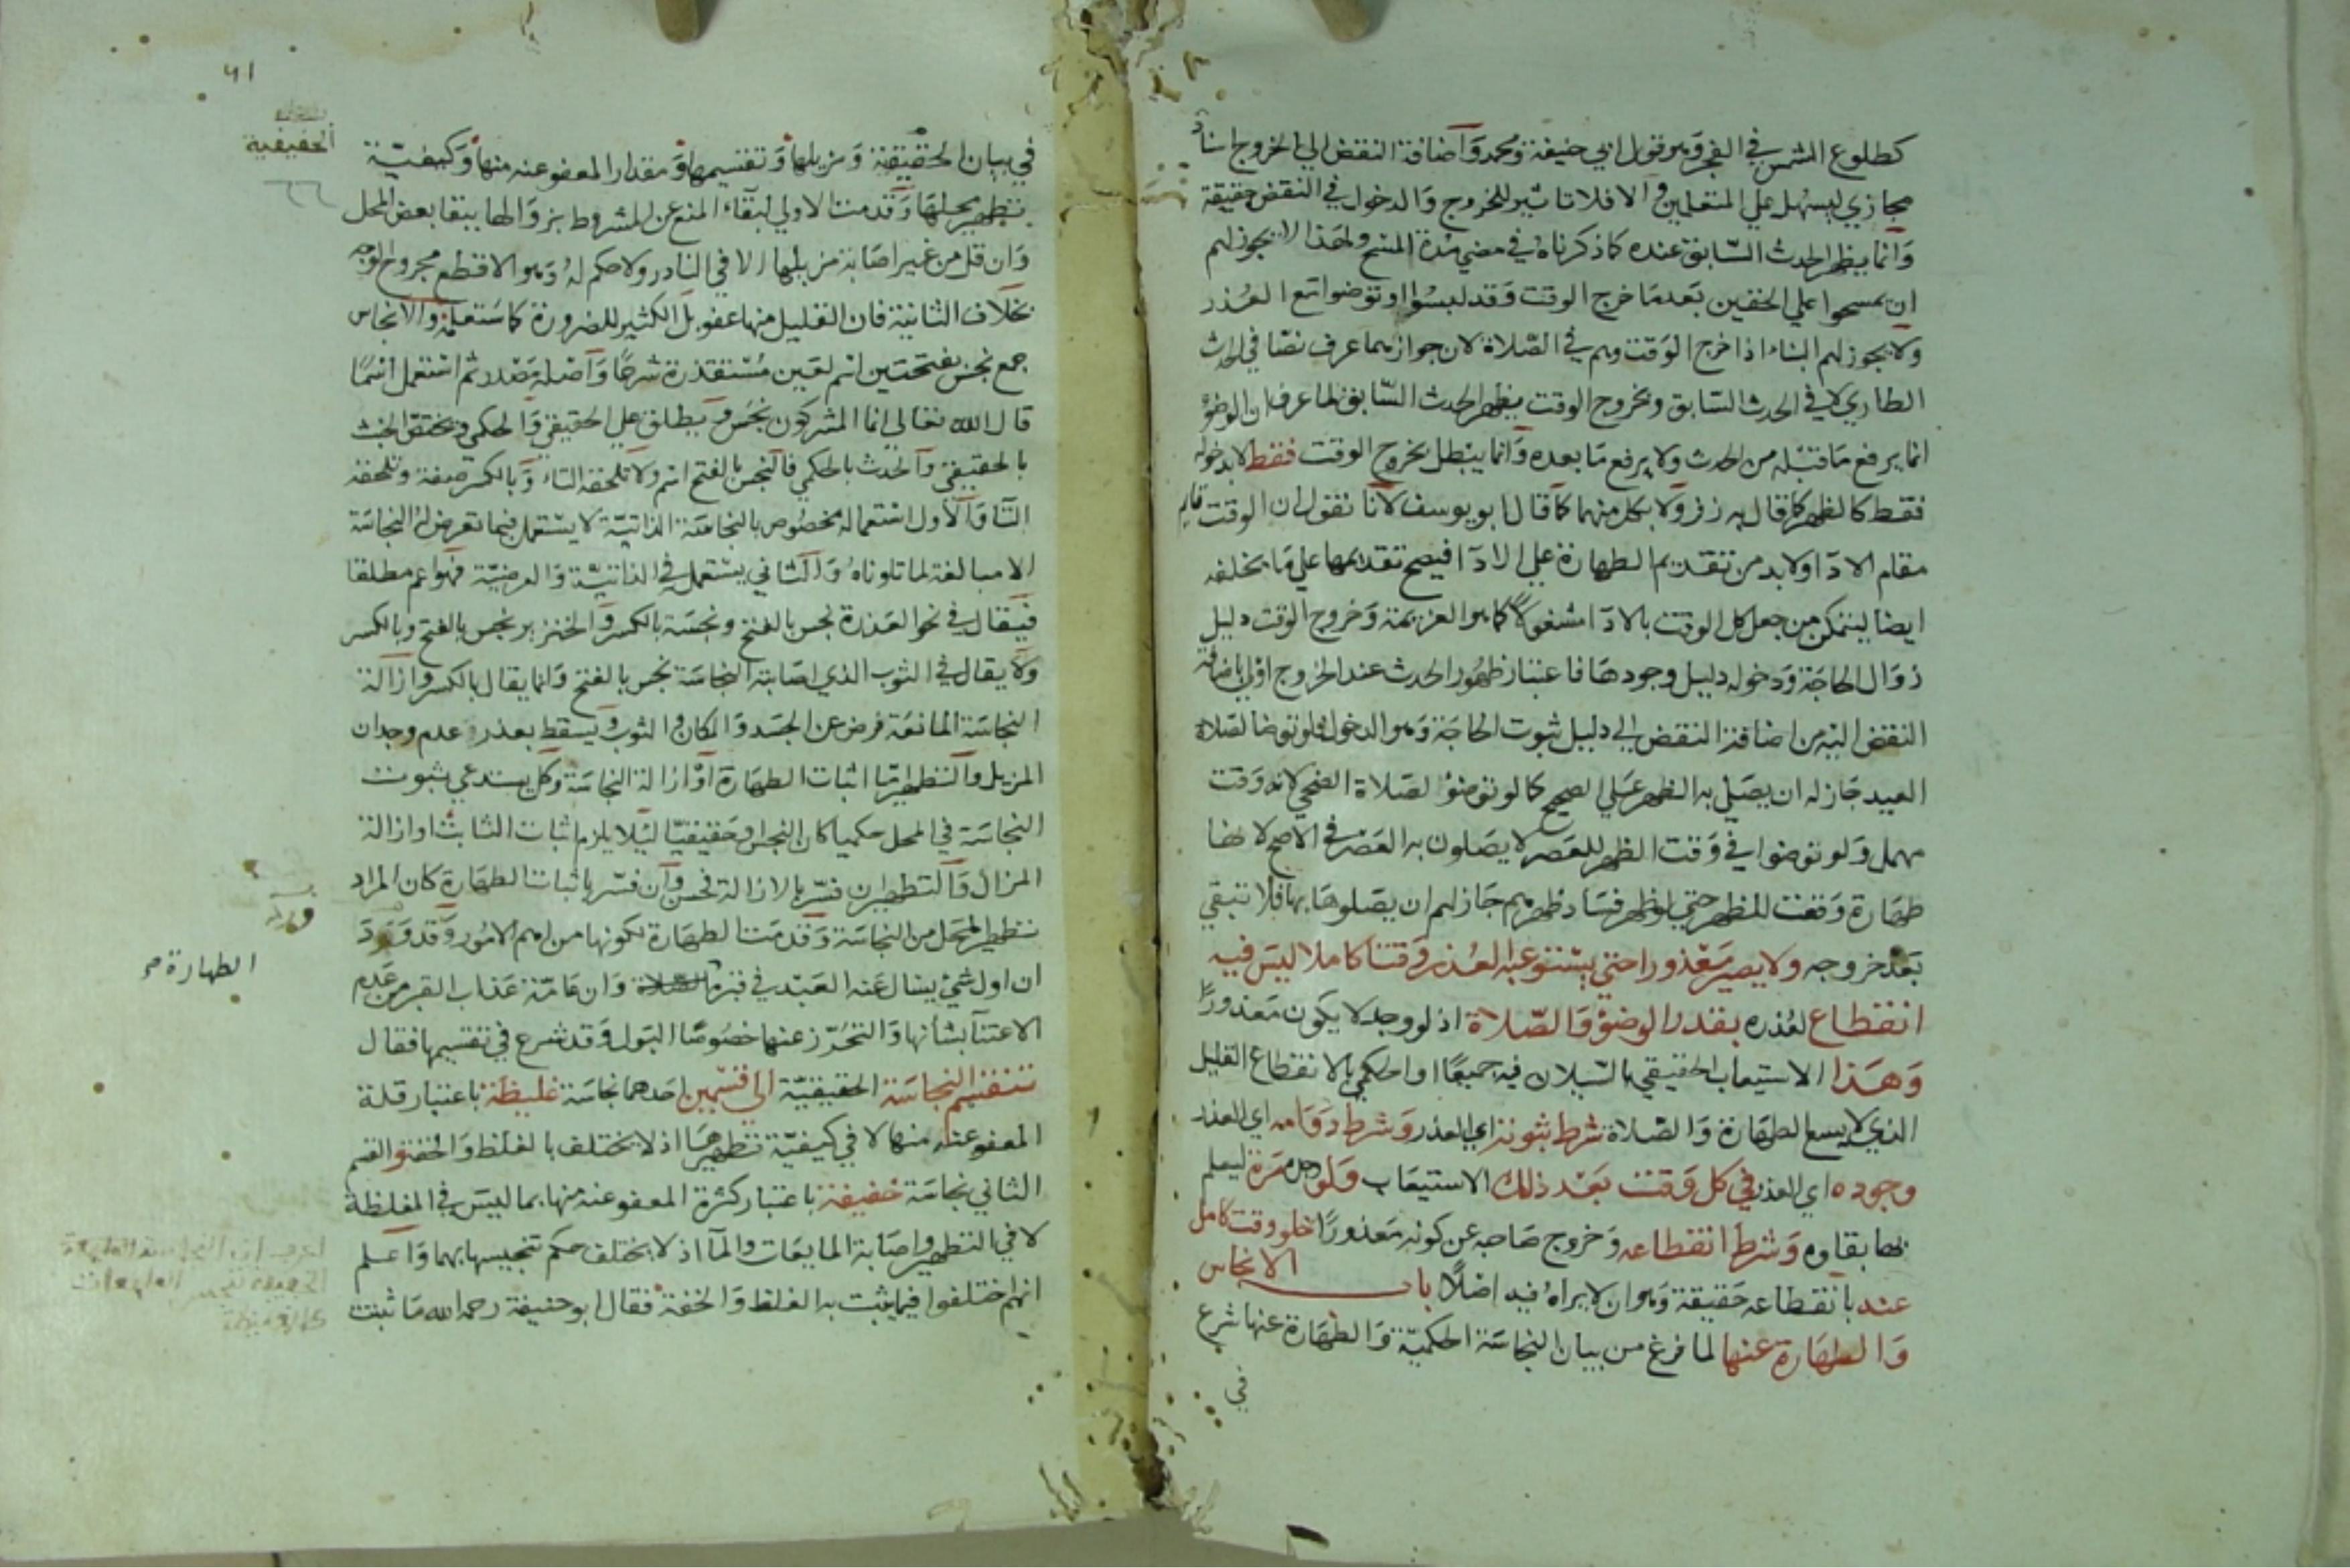 كطلوع الشمس في الفجر وهو قول ابي حنيفة ومحمد واضافة النقض الي الخروج اسناد
مجازي ليسهل علي المتعلمين والا فلا تاثير للخروج والدخول في النقض حقيقة
وانما يظهر الحدث السابق عنده كما ذكرناه في مضي مدة المسح ولهذا لا يجوز لهم
ان يمسحوا علي الخفين بعد ما خرج الوقت وقد لبسوا او توضوا مع العذر
ولا يجوز لهم البناء اذا خرج الوقت وهم في الصلاة لان جوازهما عرف نصا في الحدث
الطاري لا في الحدث السابق وبخروج الوقت يظهر الحدث السابق لما عرف ان الوضوء
انما يرفع ما قبله من الحدث ولا يرفع ما بعده وانما يبطل بخروج الوقت فقط لا بدخوله
فقط كالظهر كما قال به زفر ولا بكل منهما كما قال ابو يوسف لانا نقول ان الوقت قايم
مقام الادا ولا بد من تقديم الطهارة علي الادا فيصح تقديمها علي ما يخلفه
ايضا ليتمكن من جعل كل الوقت بالادا مشغولا كما هو العزيمة وخروج الوقت دليل
زوال الحاجة ودخوله دليل وجودها فاعتبار ظهور الحدث عند الخروج اولي باضافة
النقض اليه من اضافة النقض الي دليل ثبوت الحاجة وهو الدخول فلو توضا لصلاة
العيد جاز له ان يصلي به الظهر علي الصحيح كما لو توضؤ لصلاة الضحي لانه وقت
مهمل ولو توضوا في وقت الظهر للعصر لا يصلون به العصر في الاصح لانها
طهارة وقعت للظهر حتي لو ظهر فساد ظهرهم جاز لهم ان يصلوها بها فلا تبقي
بعد خروجه ولا يصير معذورا حتي يستوعبه العذر وقتا كاملا ليس فيه
انقطاع لعذره بقدر الوضوء والصلاة اذ لو وجد لا يكون معذورا
وهذا الاستيعاب الحقيقي بالسيلان فيه جميعا او الحكمي بالانقطاع القليل
الذي لا يسع الطهارة والصلاة شرط ثبوته اي العذر وشرط دوامه اي العذر
وجوده اي العذر في كل وقت بعد ذلك الاستيعاب ولو مرة ليعلم
بها بقاوه وشرط انقطاعه وخروج صاحبه عن كونه معذورا خلو وقت كامل
عنه بانقطاعه حقيقة وهو ان لا يراه فيه اصلا باب الانجاس
والطهارة عنها لما فرغ من بيان النجاسة الحكمية والطهارة عنها شرع
في
٦١
الحقيقية
في بيان الحقيقية ومزيلها وتقسيمها ومقدار المعفو عنه منها وكيفية
تطهير محلها وقدمت الاولي لبقاء المنع عن المشروط بزوالها ببقا بعض المحل
وان قل من غير اصابة مزيلها الا في النادر ولا حكم له وهو الاقطع مجروح الوجه
بخلاف الثانية فان القليل منها عفو بل الكثير للضرورة كما ستعلمه والانجاس
جمع نجس بفتحتين اسم لعين مستقذرة شرعا واصله مصدر ثم استعمل اسما
قال الله تعالي انما المشركون نجس ويطلق علي الحقيقي والحكمي ويختص الخبث
بالحقيقي والحدث بالحكمي فالنجس بالفتح اسم ولا تلحقه التاء وبالكسر صفة وتلحقه
التا والاول استعماله مخصوص بالنجاسة الذاتية لا يستعمل فيما تعرض له النجاسة
الا مبالغة لما تلوناه والثاني يستعمل في الذاتية والعرضية فهو اعم مطلقا
فيقال في نحو العذرة نجس بالفتح ونجسة بالكسر والخنزير نجس بالفتح وبالكسر
ولا يقال في الثوب الذي اصابته النجاسة نجس بالفتح وانما يقال بالكسر وازالة
النجاسة المانعة فرض عن الجسد والمكان والثوب ويسقط بعذر عدم وجدان
المزيل والتطهير اما اثبات الطهارة او ازالة النجاسة وكل يستدعي ثبوت
النجاسة في المحل حكميا كان النجس او حقيقيا ليلا يلزم اثبات الثابت او ازالة
المزال والتطهير ان فسر بالازالة فحسن وان فسر باثبات الطهارة كان المراد
تطهير المحل من النجاسة وقدمت الطهارة لكونها من اهم الامور وقد ورد
ان اول شيء يسال عنه العبد في قبره وان عامة عذاب القبر من عدم
الطهارة صح
الاعتنا بشانها والتحرز عنها خصوصا البول وقد شرع في تقسيمها فقال
تنقسم النجاسة الحقيقية الي قسمين احدهما نجاسة غليظة باعتبار قلة
المعفو عنه منها لا في كيفية تطهيرها اذ لا يختلف بالغلظ والخفة والقسم
الثاني نجاسة خفيفة باعتبار كثرة المعفو عنه منها بما ليس في المغلظة
لا في التطهير واصابة المايعات والماء اذ لا يختلف حكم تنجيسها بهما واعلم
انهم اختلفوا فيما يثبت به الغلظ والخفة فقال ابو حنيفة رحمه الله ما ثبت